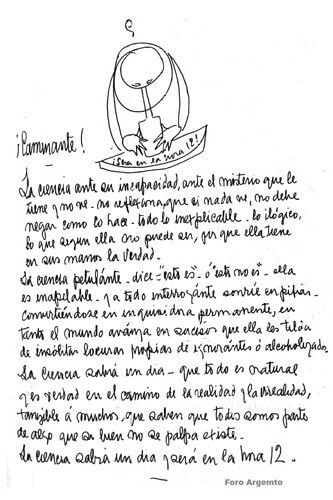 ¡Será en la hora 12!
¡Caminante!
La ciencia ante su incapacidad, ante el misterio que le
tiene y no ve - no reflexiona, que si nada ve, no debe
negar como lo hace - todo lo inexplicable - lo ilógico,
lo que segun ella no puede ser, por que ella tiene
en sus manos la verdad.
La ciencia petulante - dice - "esto es" - ó "esto no es" - ella
es inapelable - y a todo interrogante sonrie en
convirtiendose en inquisidora permanente, en
tanto el mundo avanza en sucesos que ella les tilda
de insólitas locuras propias de ignorantes ó alcoholizados.
La ciencia sabrá un dia - que todo es natural
y es verdad en el camino de la realidad y la irrealidad,
tangible á muchos, que saben que todos somos parte
de algo que si bien no se palpa existe.
La ciencia sabrá un dia y será en la hora 12.
Foro Argento